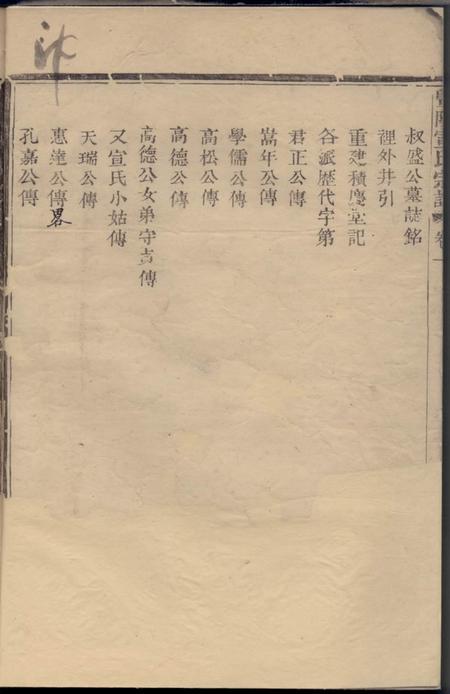 暨陽宣氏宗譜 卷一
叔盛公墓誌銘
裡外井引
重建積慶堂記
各派歷代字第
君正公傳
嵩年公傳
學儒公傳
高松公傳
高德公傳
高德公女弟守貞傳
又宣氏小姑傳
天瑞公傳
惠達公傳畧
孔嘉公傳